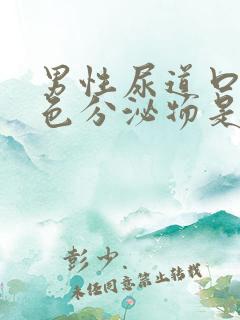 男性尿道口
色分泌物是
彭少
未经同意禁止转载